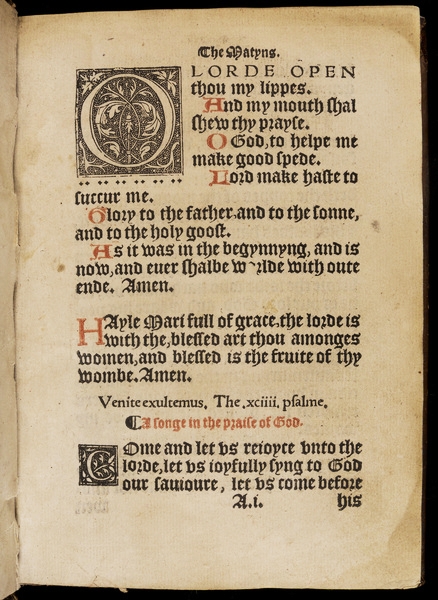 The Matyns.
O LORDE OPEN
thou my lippes.
And my mouth shal
shew thy prayse.
O God, to helpe me
make good spede.
Lord make haste to
succur me.
Glory to the father, and to the sonne,
and to the holy goost.
As it was in the begynnyng, and is
now, and euer shalbe w rlde with oute
ende. Amen.
HAyle Mari full of grace, the lorde is
with the, blessed art thou amonges
women, and blessed is the fruite of thy
wombe. Amen.
Venite exultemus. The .xciiii. psalme.
¶A songe in the praise of God.
COme and let vs reioyce vnto the
lorde, let vs ioyfully syng to God
our sauioure, let vs come before
A.i. his